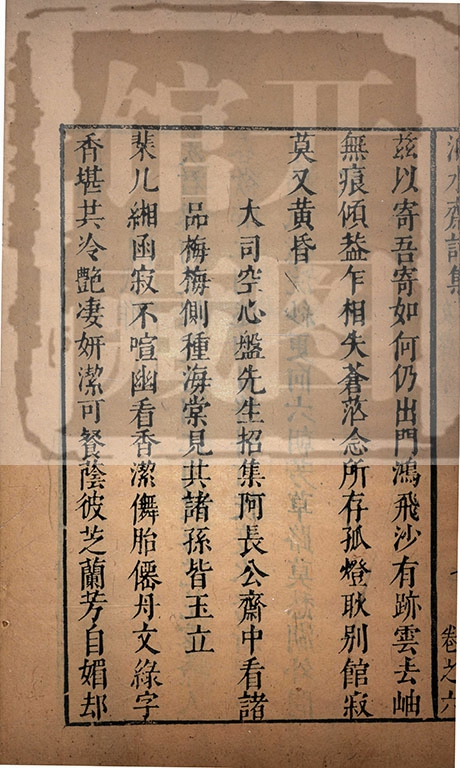 茲以寄吾寄如何仍出門鴻飛沙有跡雲去岫
無痕傾葢乍相失蒼茫念所存孤燈耿別館寂
莫又黃昏
大司空心盤先生招集阿長公齋中看諸
品梅梅側種海棠見其諸孫皆玉立
棐几緗函寂不喧幽看香潔儛胎僊丹文綠字
香堪其冷艷凄妍潔可餐蔭彼芝蘭芳自媚却
卷之六